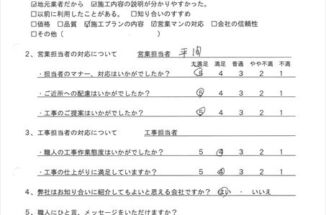 ☑地元業者だから ☑施工内容の説明が分かりやすかった。
□以前に利用したことがある。 □知り合いのすすめ
□価格 □品質 ☑施工プランの内容 ☑営業マンの対応 □会社の信頼性
□その他( )
2、営業担当者の対応について 営業担当者 平
大満足 満足 普通 やや不満 不満
・担当者のマナー、対応はいかがでしたか? 5 4 3 2 1
・ご近所への配慮はいかがでしたか? 5 4 3 2 1
・工事のご提案はいかがでしたか? 5 4 3 2 1
3、工事担当者の対応について 工事担当者
・職人の工事作業態度はいかがでしたか? 5 4 3 2 1
・工事の仕上がりに満足していますか? 5 4 3 2 1
4、弊社はお知り合いに紹介してもよいと思える会社ですか? はい ・ いいえ
5、職人にひと言、メッセージをいただけますか?